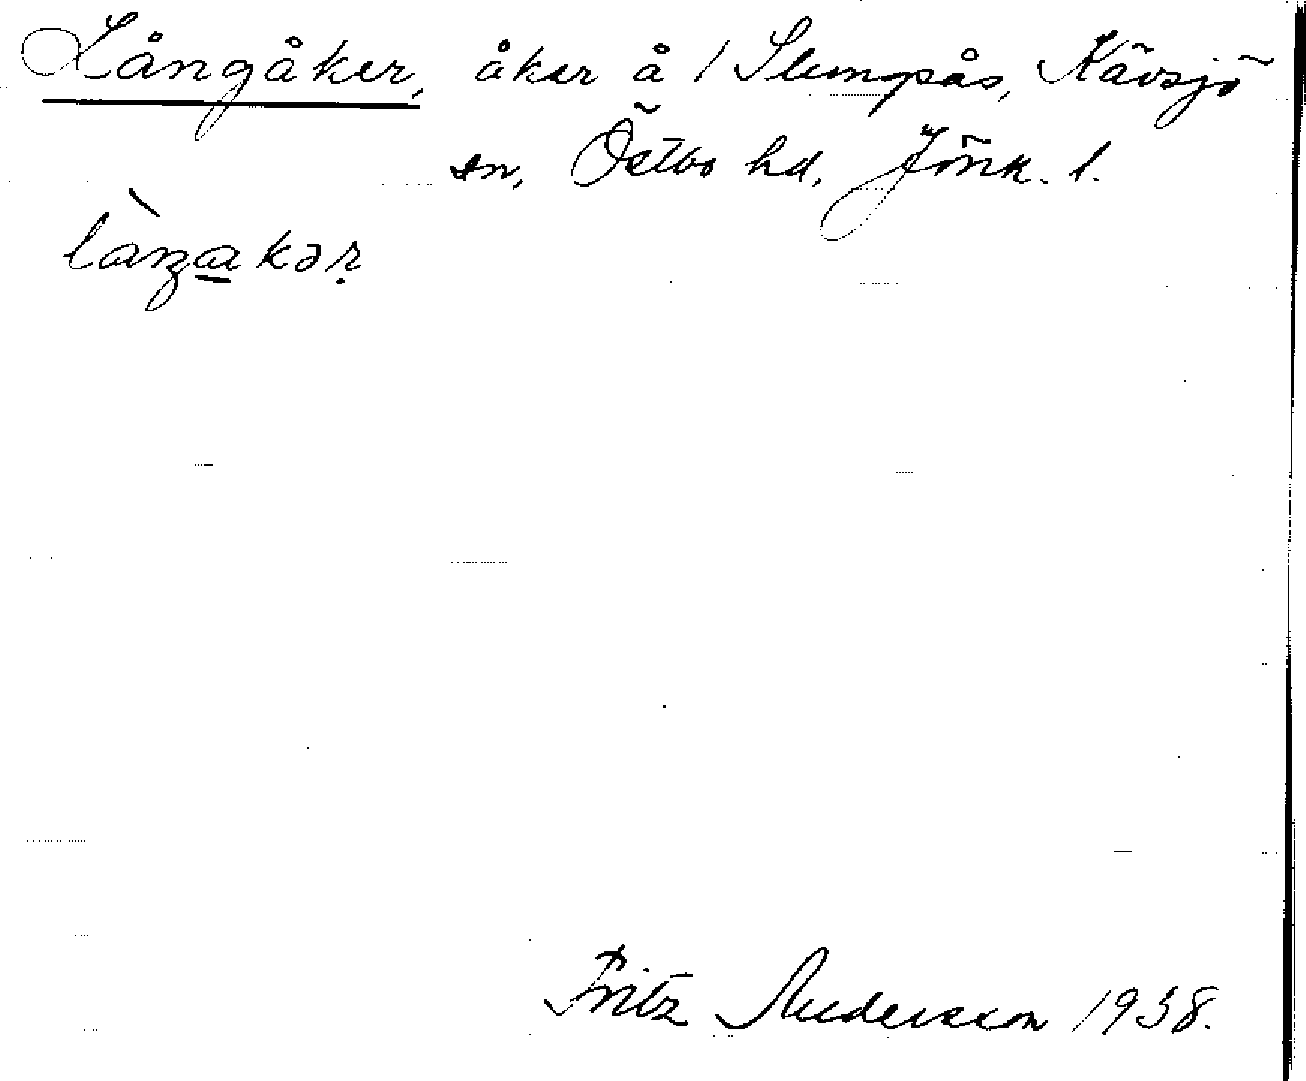 Långåker, åker å / Slumpås, Kävsjö
sn, Östbo hd, Jönk. l.
làŋakəṛ
Fritz Andersson 1938.